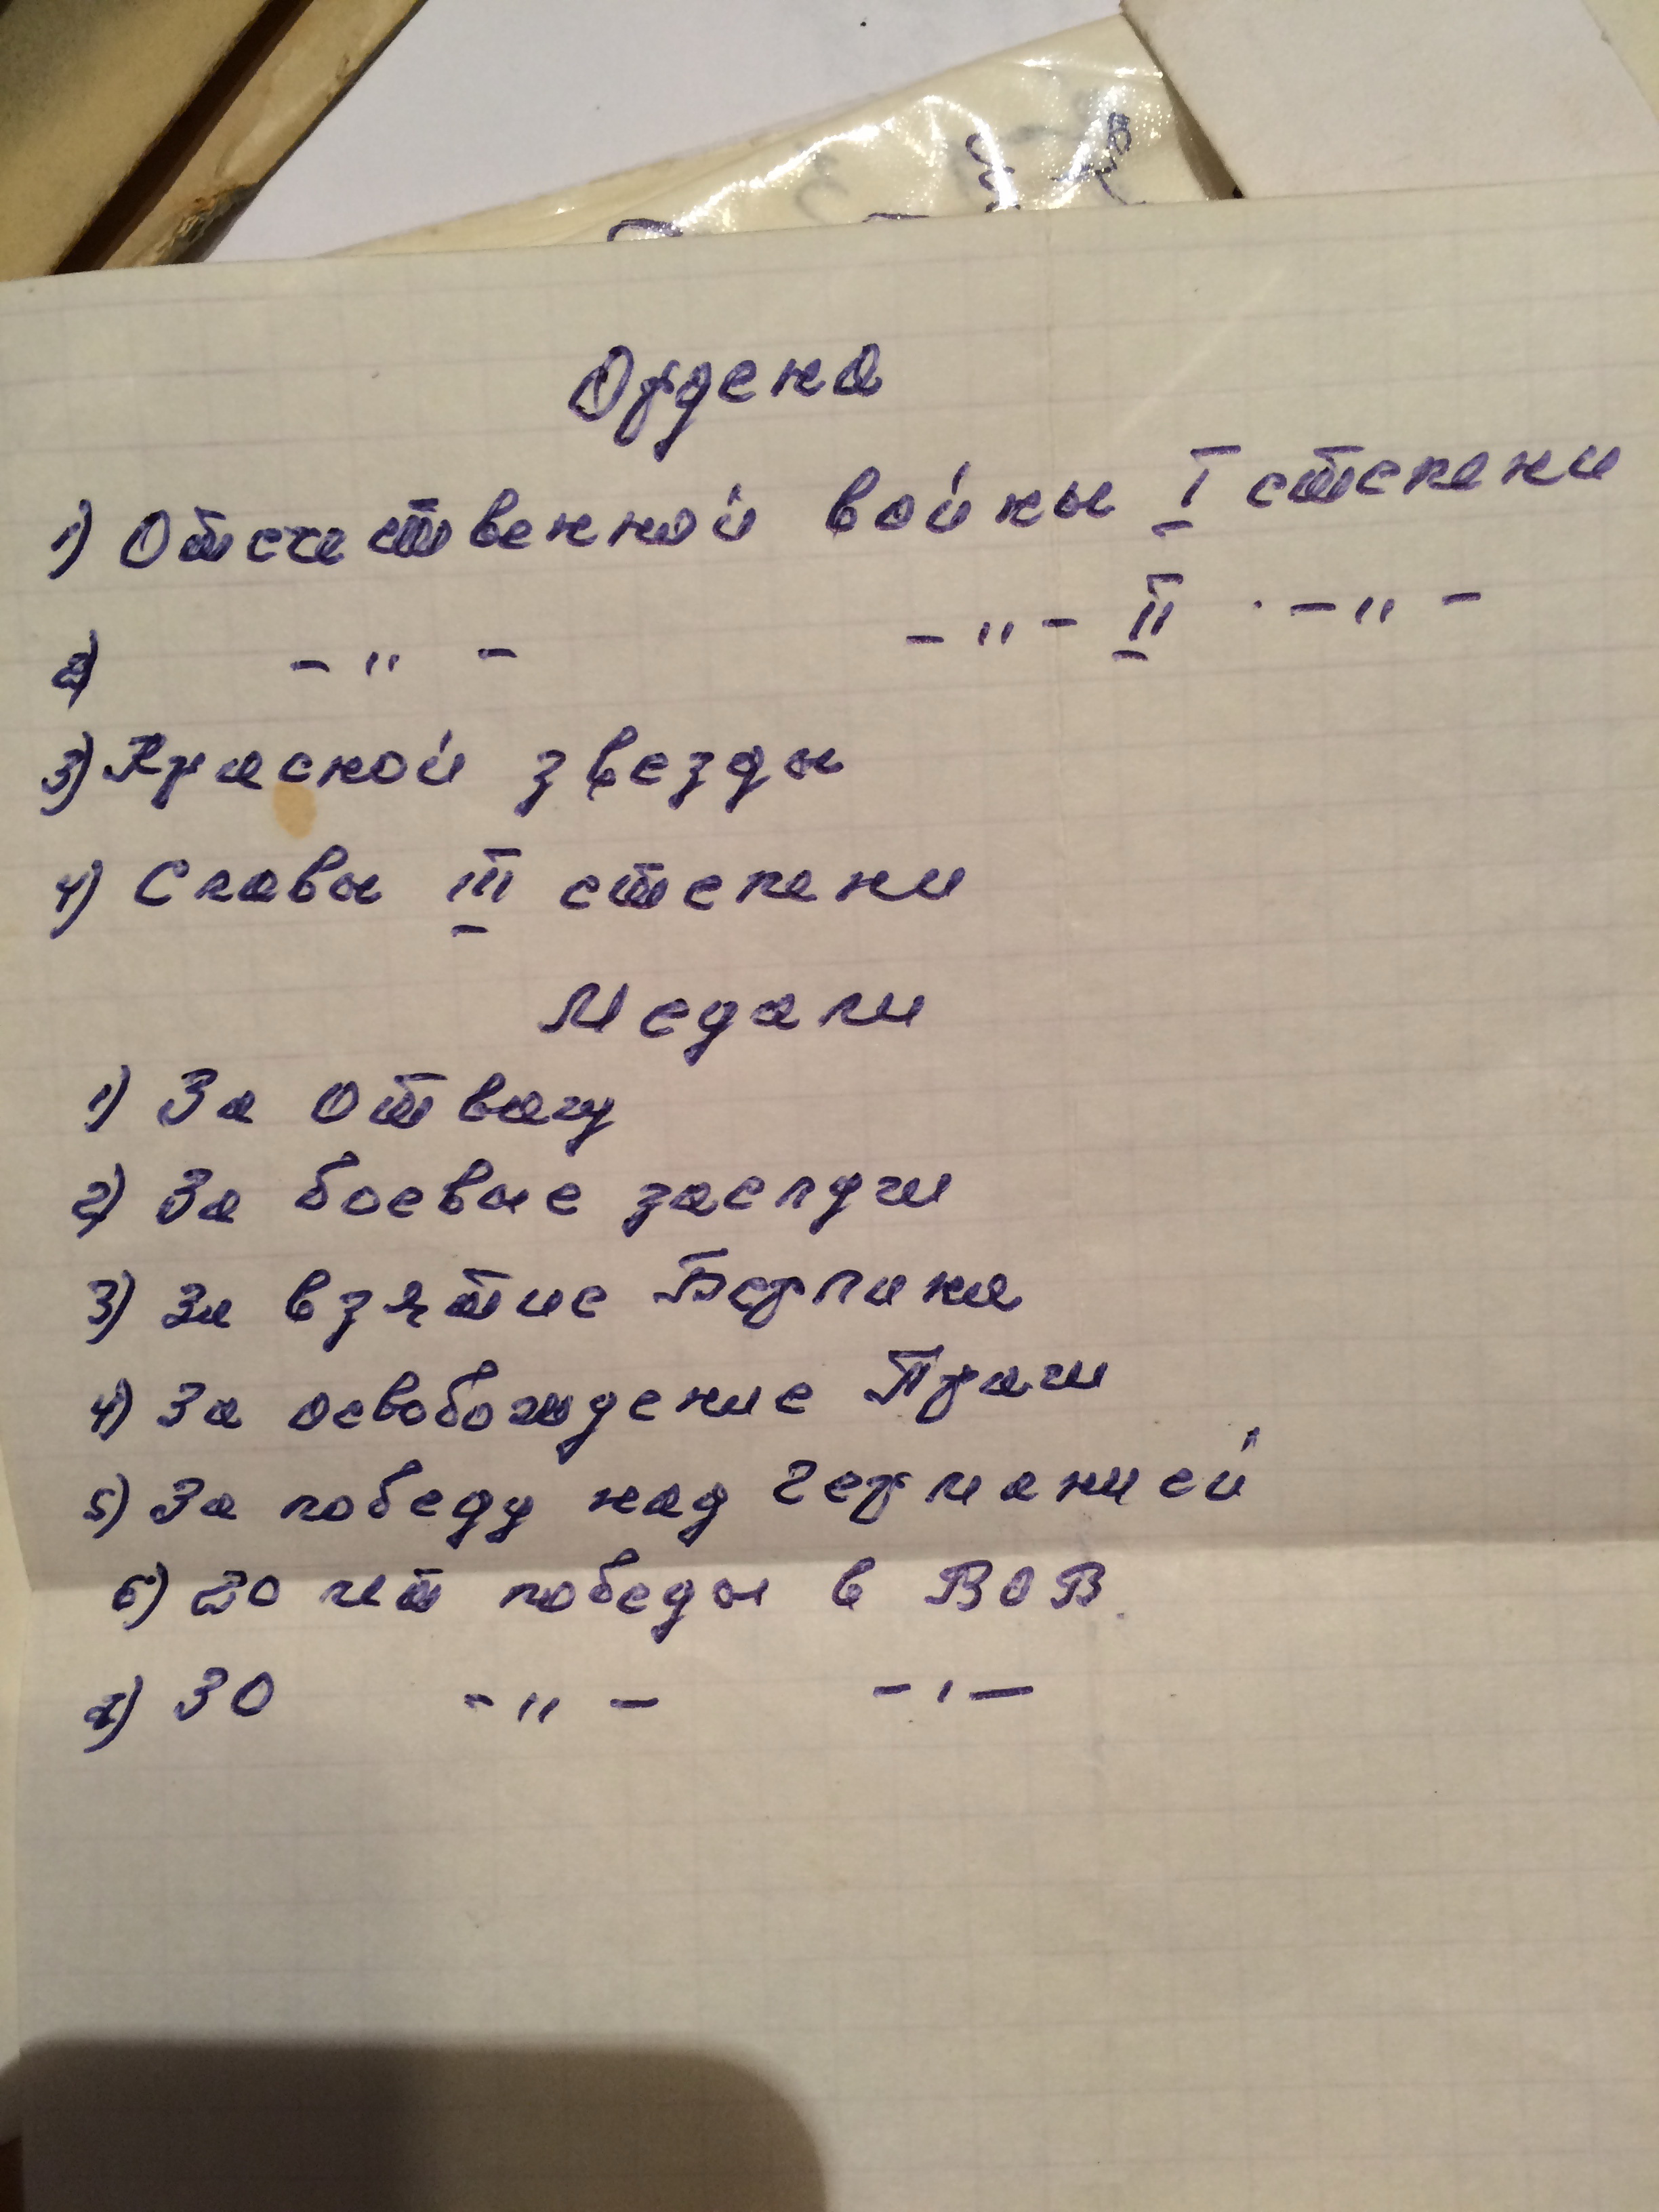 Ордена
1) Отечественной войны I степени
2) - " - - " - II - " -
3) Красной звезды
4) Славы III степени
Медали
1) За Отвагу
2) За боевые заслуги
3) За взятие Берлина
4) За освобождение Праги
5) За победу над Германией
6) 20 лет победы в ВОВ.
7) 30 - " - - ' -